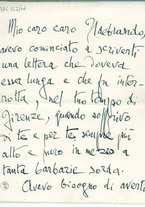 Mio caro caro Ildebrando,
avevo cominciato a scriverti
una lettera che doveva
esser lunga e che fu inter-
rotta, nel tuo tempo di
Firenze, quando soffrivo
di te e per te, sempre più
alto e puro in mezzo a
tanta barbarie sorda.
Avevo bisogno di averti